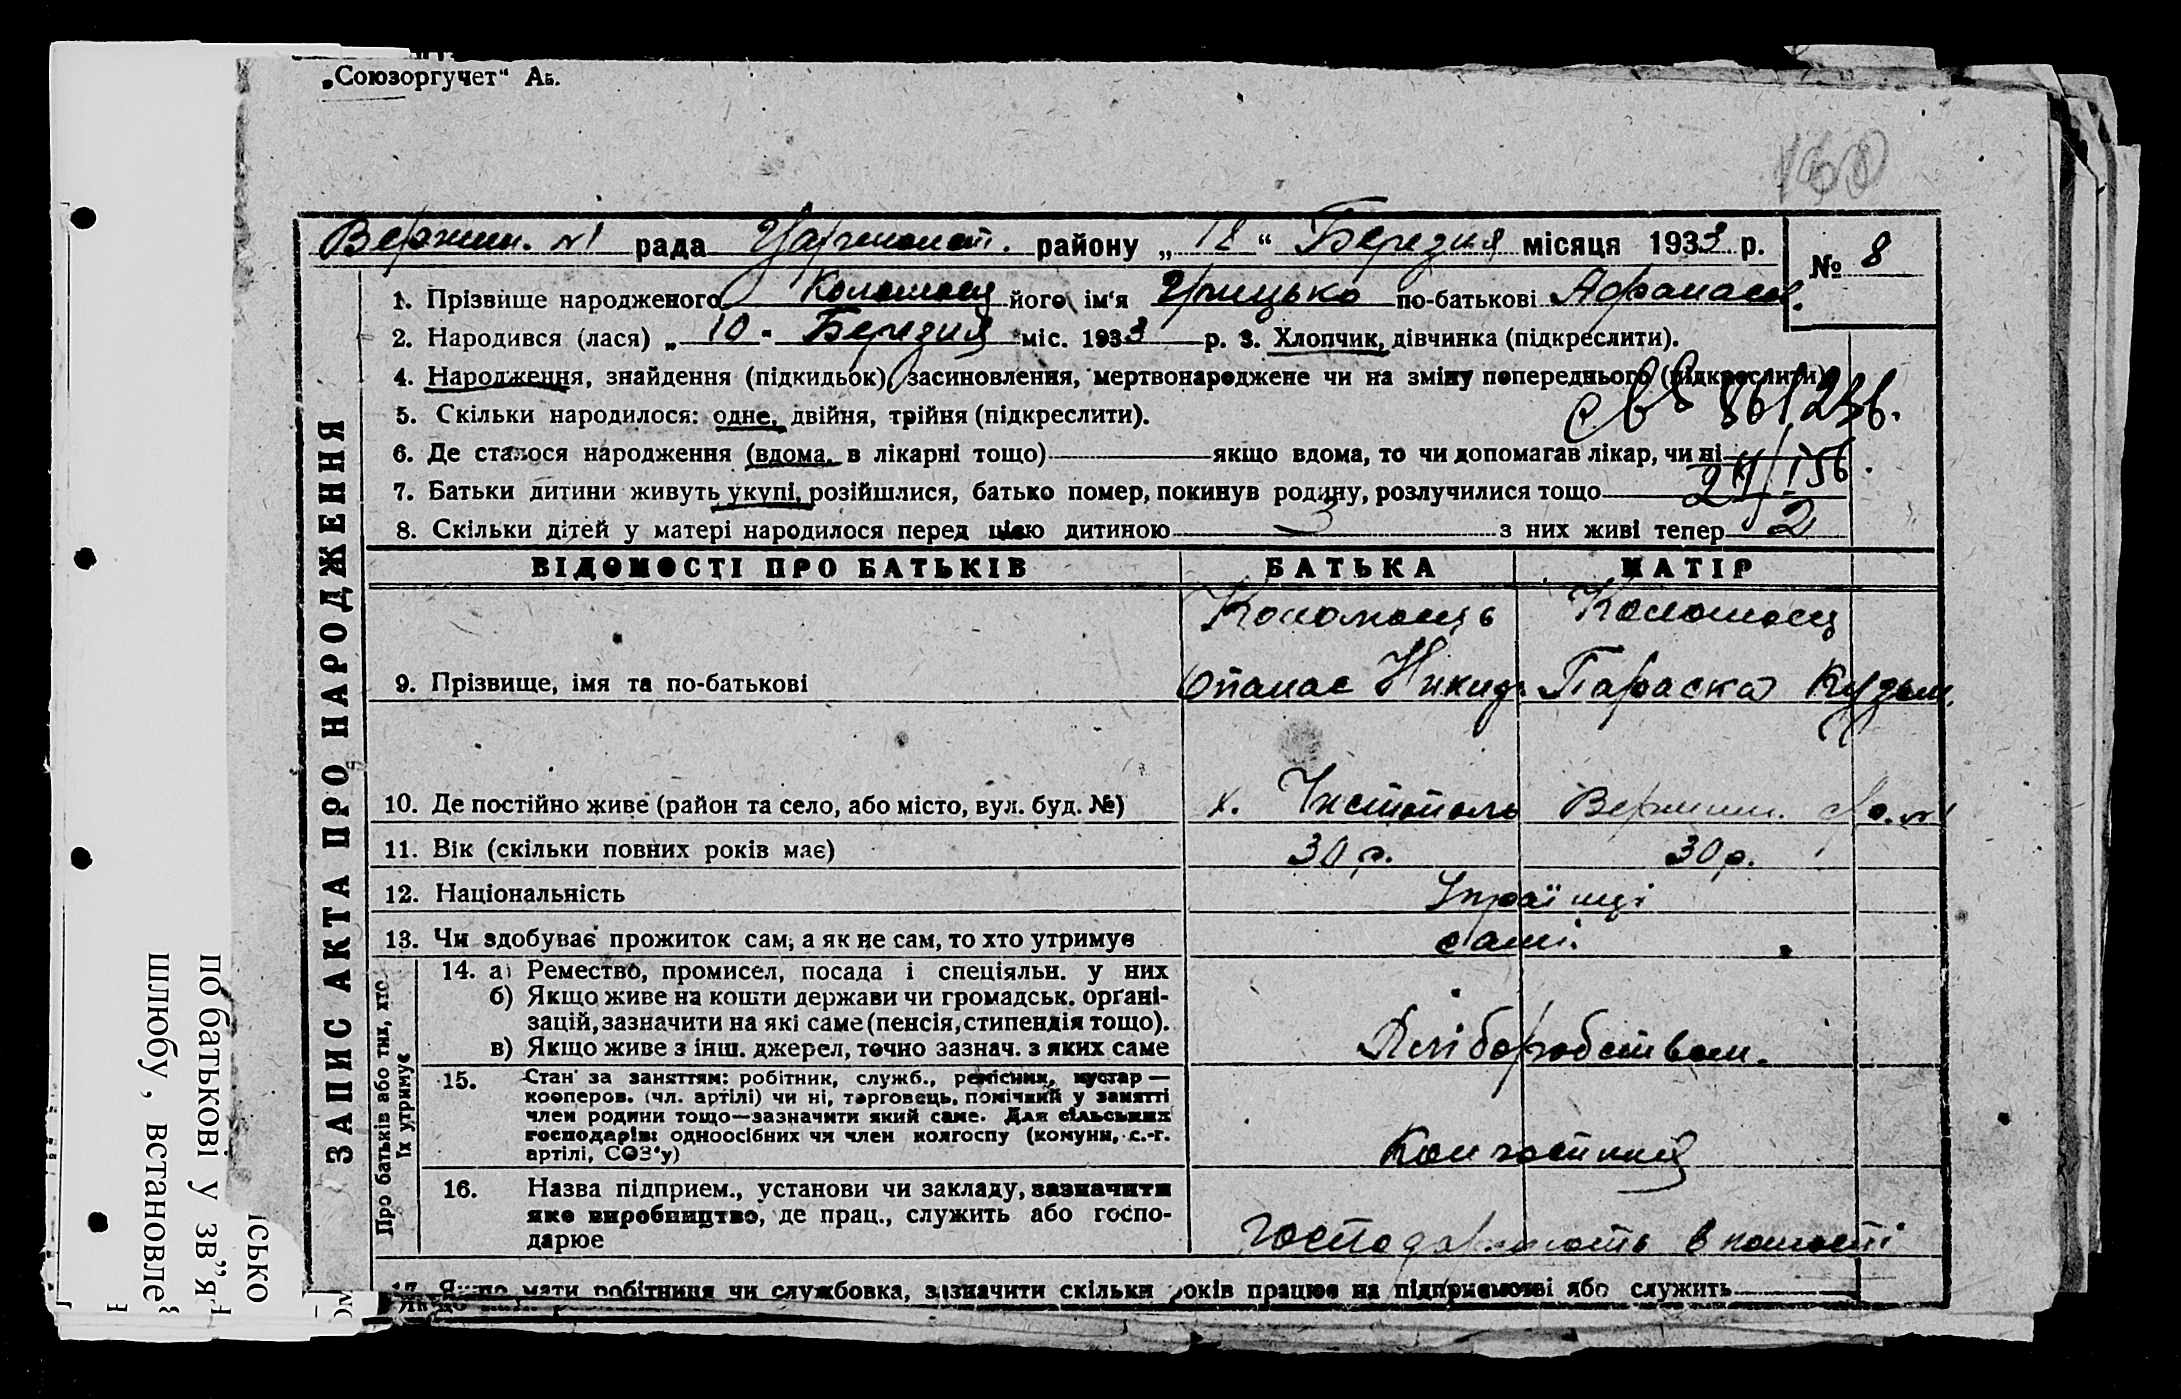 „Союзоргучет“ Аб.
160
Вержин. №1 рада Царичанськ. району „12“ Березня місяця 1933 р. № 8
1. Прізвище народженого Коломоєц його ім‘я Грицько по-батькові Афанасов.
2. Народився (лася) „10“ Березня міс. 1933 р. 3. Хлопчик, дівчинка (підкреслити).
4. Народження, знайдення (підкидьок), засиновлення, мертвонароджене чи на зміну попереднього (підкреслити)
5. Скільки народилося: одне, двійня, трійня (підкреслити).
6. Де сталося народження (вдома, в лікарні тощо) якщо вдома, то чи допомагав лікар, чи ні
7. Батьки дитини живуть укупі, розійшлися, батько помер, покинув родину, розлучилися тощо
8. Скільки дітей у матері народилося перед цією дитиною 3 з них живі тепер 2
ВІДОМОСТІ ПРО БАТЬКІВ БАТЬКА МАТІР
Коломоєць Коломоєц
9. Прізвище, імя та по-батькові Опанас Никид. Параска Кузьм.
10. Де постійно живе (район та село, або місто, вул. буд. №) х. Чистополь Вержин. №1
11. Вік (скільки повних років має) 30 р. 30 р.
12. Національність Українці
13. Чи здобуває прожиток сам, а як не сам, то хто утримує самі.
14. а) Ремество, промисел, посада і спеціяльн. у них
б) Якщо живе на кошти держави чи громадськ. орґані-
зацій, зазначити на які саме (пенсія, стипендія тощо).
в) Якщо живе з інш. джерел, точно зазнач. з яких саме Хліборобством.
15. Стан за заняттям: робітник, служб., ремісник, кустар —
кооперов. (чл. артілі) чи ні, торговець, помічний у занятті
член родини тощо—зазначити який саме. Для сільських
господарів: одноосібних чи член колгоспу (комуни, с.-г.
артілі, СОЗ‘у) Колгоспниця
16. Назва підприєм., установи чи закладу, зазначити
яке виробництво, де прац., служить або госпо-
дарюе Господарюють в колгоспі
17. Якщо мати робітниця чи службовка, зазначити скільки років працює на підприємстві або служить
ЗАПИС АКТА ПРО НАРОДЖЕННЯ
Про батьків або тих, хто
їх утримує
ісько
по батькові у зв”я
шлюбу, встановле